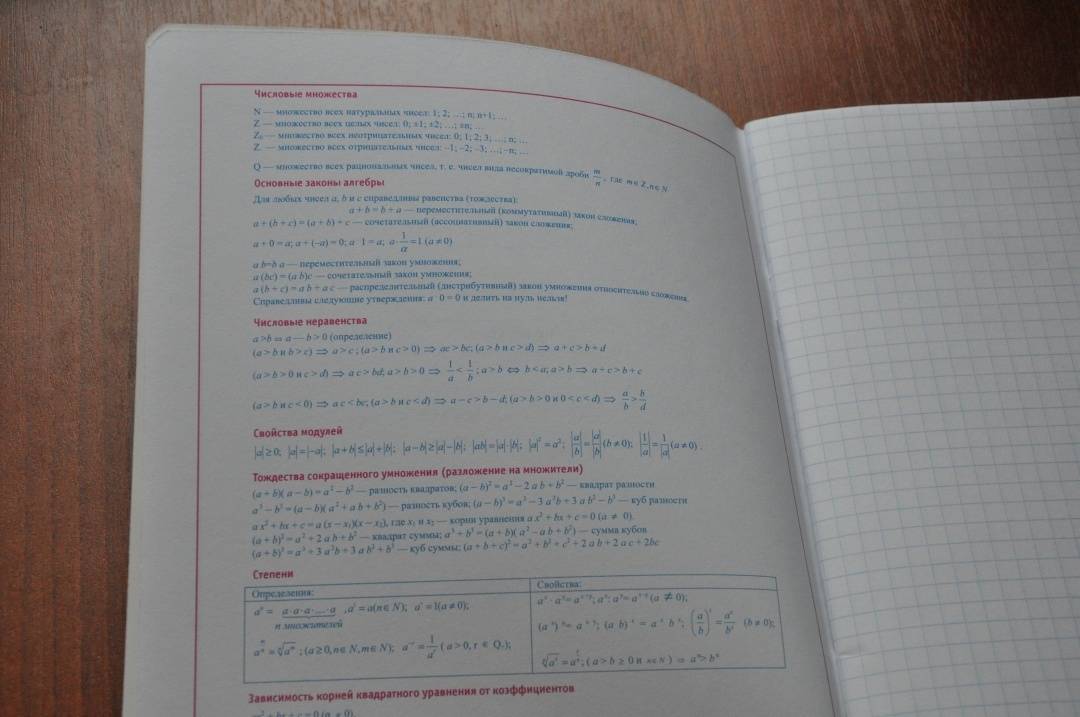 Числовые множества
N — множество всех натуральных чисел: 1; 2; …; n; n+1; …
Z — множество всех целых чисел: 0; ±1; ±2; …; ±n; …
Z₀ — множество всех неотрицательных чисел: 0; 1; 2; 3, …; n; …
Z. — множество всех отрицательных чисел: –1; –2; –3; …; –n; …
Q — множество всех рациональных чисел, т. е. чисел вида несократимой дроби m/n, где m∈Z, n∈N.
Основные законы алгебры
Для любых чисел a, b и c справедливы равенства (тождества):
a + b = b + a — переместительный (коммутативный) закон сложения;
a + (b + c) = (a + b) + c — сочетательный (ассоциативный) закон сложения;
a + 0 = a; a + (–a) = 0; a · 1 = a; a · 1/a = 1 (a ≠ 0)
a b=b a — переместительный закон умножения;
a (bc) = (a b)c — сочетательный закон умножения;
a (b + c) = a b + a c — распределительный (дистрибутивный) закон умножения относительно сложения.
Справедливы следующие утверждения: a · 0 = 0 и делить на нуль нельзя!
Числовые неравенства
a >b ⇔ a — b > 0 (определение)
(a > b и b > c) ⇒ a > c ; (a > b и c > 0) ⇒ ac > bc; (a > b и c > d) ⇒ a + c > b + d
(a > b > 0 и c > d) ⇒ a c > bd; a > b > 0 ⇒ 1/a < 1/b ; a > b ⇔ b < a; a > b ⇒ a + c > b + c
(a > b и c < 0) ⇒ a c < bc; (a > b и c < d) ⇒ a − c > b − d; (a > b > 0 и 0 < c < d) ⇒ a/b > b/d
Свойства модулей
|a| ≥ 0; |a| = |−a|; |a+b| ≤ |a|+|b|; |a−b| ≥ |a|−|b|; |ab| = |a|·|b|; |a|² = a²; |a/b| = |a|/|b| (b ≠ 0); |1/a| = 1/|a| (a ≠ 0) .
Тождества сокращенного умножения (разложение на множители)
(a + b)( a − b) = a² − b² — разность квадратов; (a − b)² = a² − 2 a b + b² — квадрат разности
a³ − b³ = (a − b)( a² + a b + b²) — разность кубов; (a − b)³ = a³ − 3 a²b + 3 a b² − b³ — куб разности
a x² + bx + c = a (x − x₁)(x − x₂), где x₁ и x₂ — корни уравнения a x² + bx + c = 0 (a ≠ 0).
(a + b)² = a² + 2 a b + b² — квадрат суммы; a³ + b³ = (a + b)( a² − a b + b²) — сумма кубов
(a + b)³ = a³ + 3 a²b + 3 a b² + b³ — куб суммы; (a + b + c)² = a² + b² + c² + 2 a b + 2 a c + 2bc
Степени
Определения:
a·a·a·…·a
n множителей
(a ≥ 0, n∈N, m∈N);
( a > 0, r ∈ Q.);
Свойства:
(a ≠ 0);
(b ≠ 0);
( a > b ≥ 0 и n∈N ) ⇒ aⁿ > bⁿ
Зависимость корней квадратного уравнения от коэффициентов